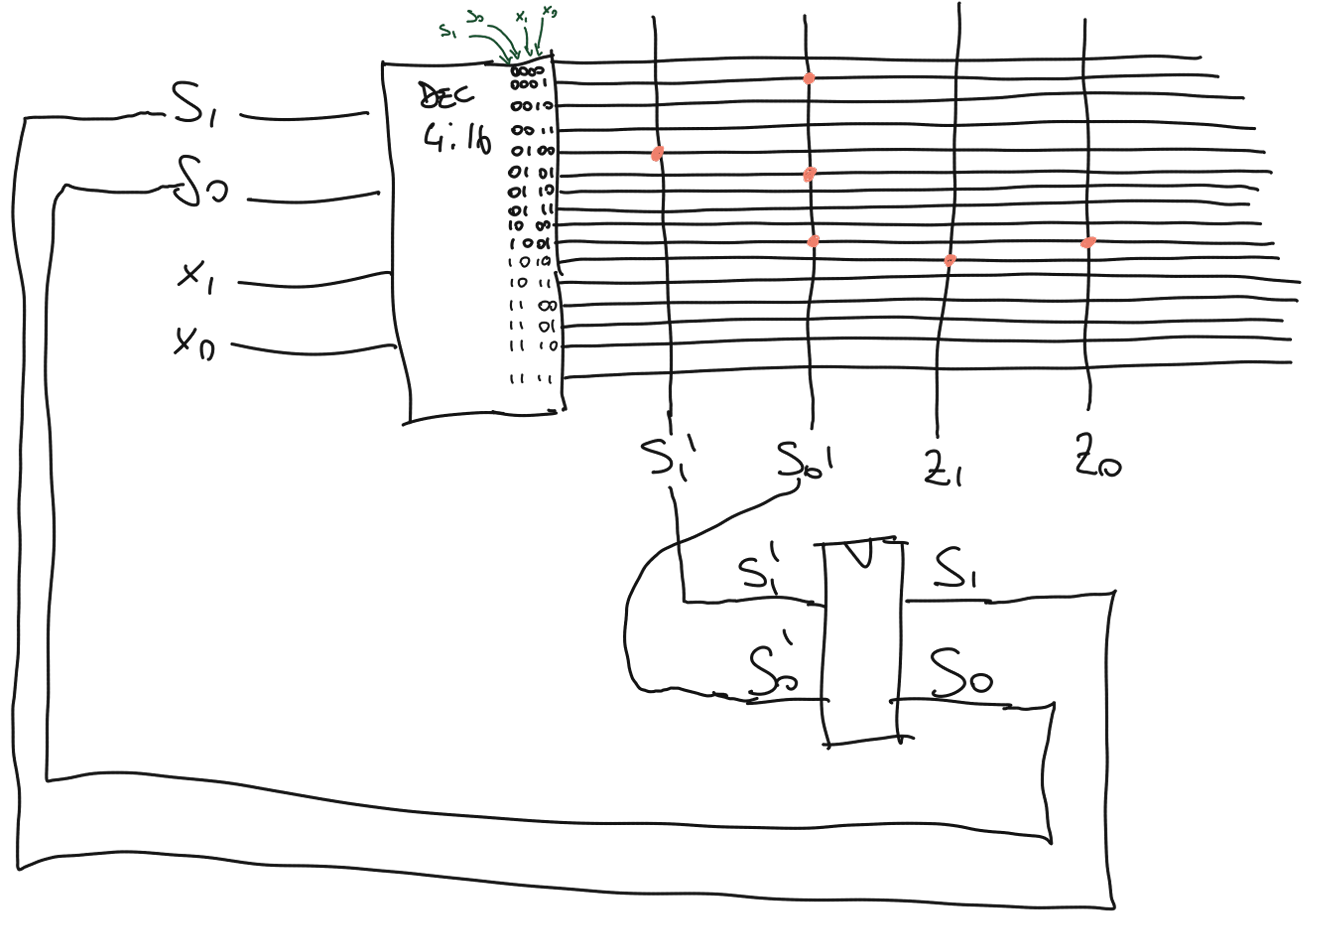 S₁ S₀ X₁ X₀
DEC
4:16
0000
0001
0010
00 11
01 00
01 01
01 10
01 11
10 00
10 01
10 10
10 11
11 00
11 01
11 10
11 11
S₁
S₀
X₁
X₀
S₁' S₀' Z₁ Z₀
S₁' S₁
S₀' S₀